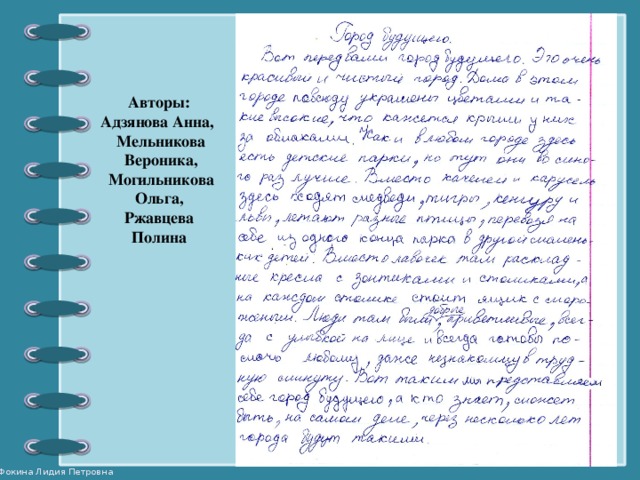 Авторы:
Адзянова Анна,
Мельникова
Вероника,
Могильникова
Ольга,
Ржавцева
Полина
Город будущего.
Вот перед вами город будущего. Это очень
красивый и чистый город. Дома в этом
городе повсюду украшены цветами и та-
кие высокие, что кажется крыши у них
за облаками. Как и в любом городе здесь
есть детские парки, но тут они во мно-
го раз лучше. Вместо качелей и карусель
здесь ходят медведи, тигры, кенгуру и
львы, летают разные птицы, перевозя на
себе из одного конца парка в другой малень-
ких детей. Вместо лавочек там расклад-
ные кресла с зонтиками и столиками, а
на каждом столике стоит ящик с моро-
женым. Люди там были добрые, приветливые, всег-
да с улыбкой на лице и всегда готовы по-
мочь любому, даже незнакомцу в труд-
ную минуту. Вот таким мы представляем
себе город будущего, а кто знает, может
быть, на самом деле, через несколько лет
города будут такими.
Фокина Лидия Петровна